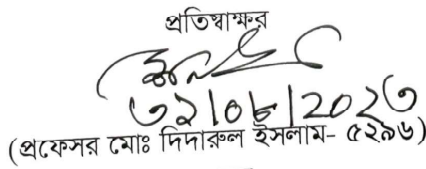 প্রতিস্বাক্ষর
৩১|০৮|২০২৩
(প্রফেসর মোঃ দিদারুল ইসলাম- ৫২৯৬)